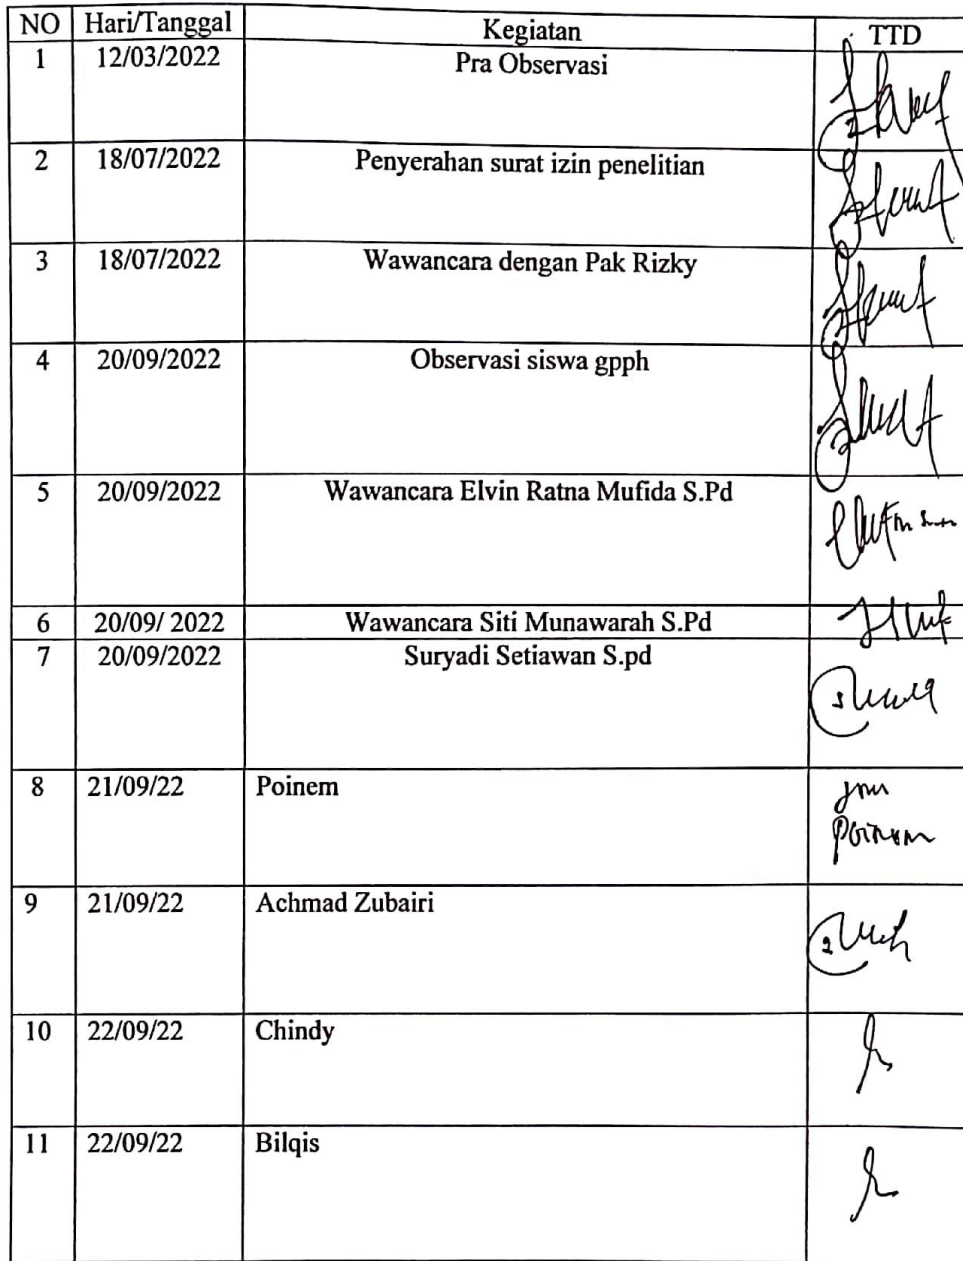 NO Hari/Tanggal Kegiatan TTD
1 12/03/2022 Pra Observasi
2 18/07/2022 Penyerahan surat izin penelitian
3 18/07/2022 Wawancara dengan Pak Rizky
4 20/09/2022 Observasi siswa gpph
5 20/09/2022 Wawancara Elvin Ratna Mufida S.Pd
6 20/09/ 2022 Wawancara Siti Munawarah S.Pd
7 20/09/2022 Suryadi Setiawan S.pd
8 21/09/22 Poinem
9 21/09/22 Achmad Zubairi
10 22/09/22 Chindy
11 22/09/22 Bilqis